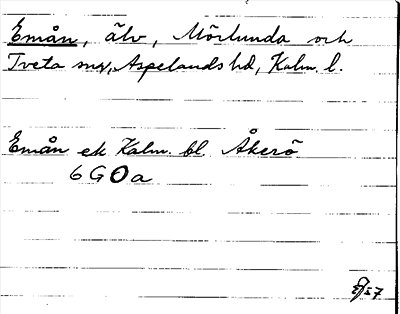 Emån, älv, Mörlunda och
Tveta snr, Aspelands hd, Kalm. l.
Emån ek Kalm. bl. Åkerö
6 G 0 a
57